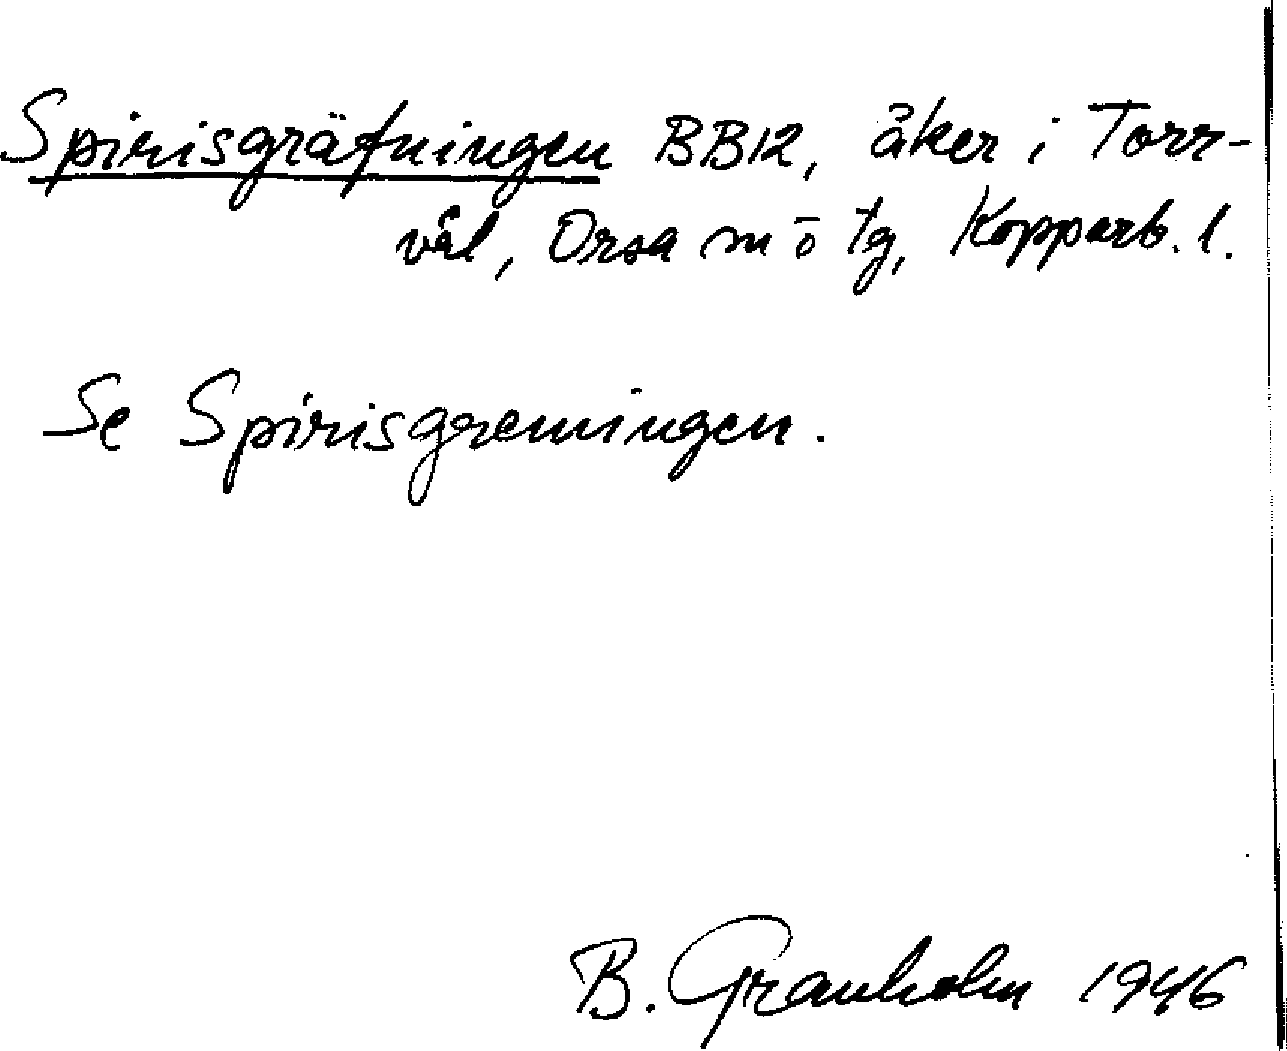 Spirisgräfningen BB12, åker i Torr-
vål, Orsa sn o tg, Kopparb. l.
Se Spirisgremningen.
B. Granholm 1946